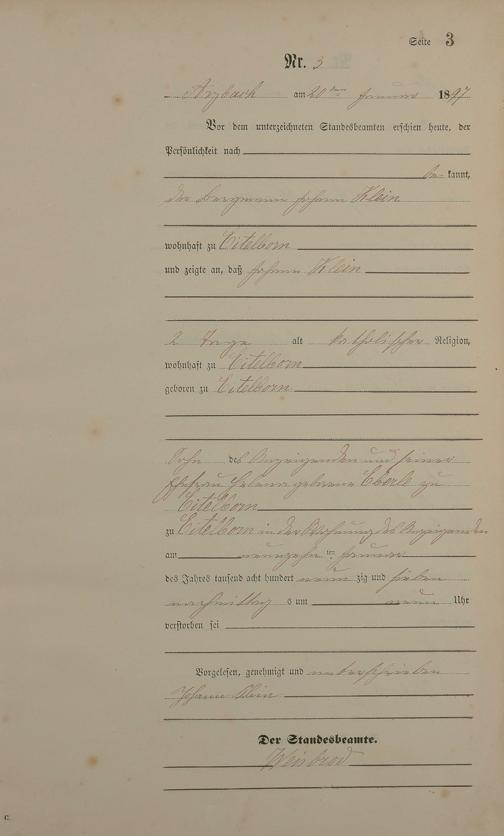 Seite 3
Nr. 3
Arzbach am 20ten Januar 1897
Vor dem unterzeichneten Standesbeamten erschien heute, der
Persönlichkeit nach
be kannt,
der Bergmann Johann Klein
wohnhaft zu Eitelborn
und zeigte an, daß Johann Klein
2 Tage alt katholischer Religion,
wohnhaft zu Eitelborn
geboren zu Eitelborn
Sohn des Anzeigenden und seiner
Ehefrau Helena geborene Eberle zu
Eitelborn
zu Eitelborn in der Wohnung des Anzeigenden
am neunzehn ten Januar
des Jahres tausend acht hundert neun zig und sieben
nachmittag s um neun Uhr
verstorben sei
Vorgelesen, genehmigt und unterschrieben
Johann Klein
Der Standesbeamte.
Weinbrod
C.